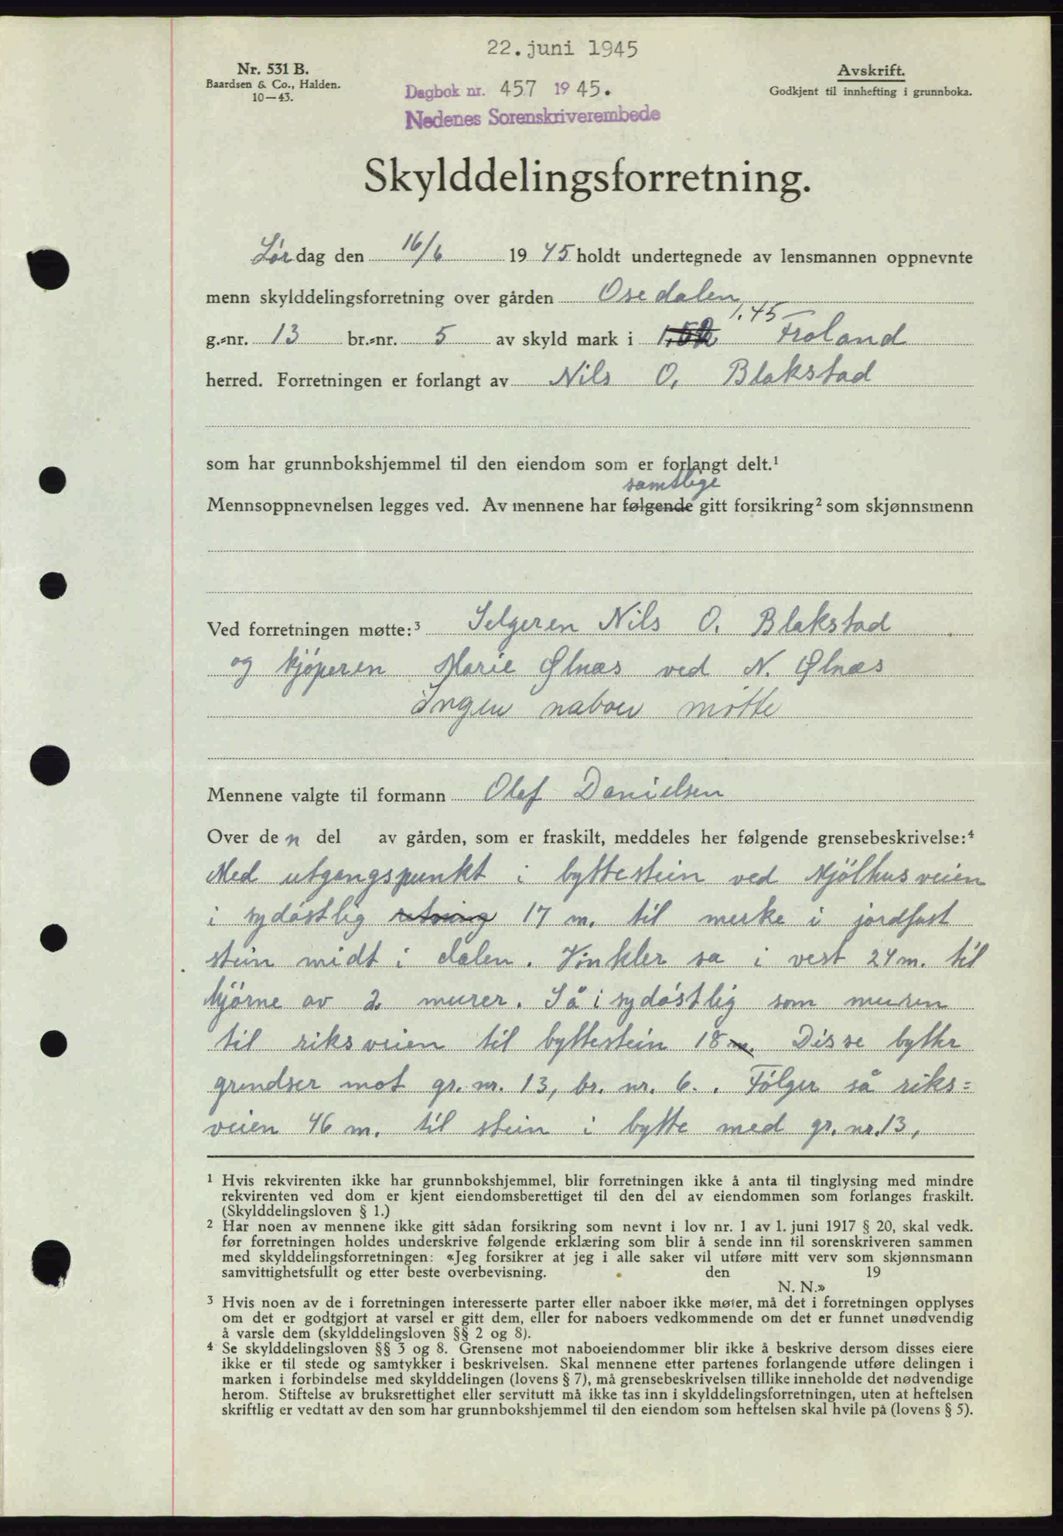 22.juni 1945
Nr. 531 B.
Baardsen & Co., Halden.
10—43.
Dagbok nr. 457 1945.
Nedenes Sorenskriverembede
Avskrift.
Godkjent til innhefting i grunnboka.
Skylddelingsforretning.
Lørdag den 16/6 1945 holdt undertegnede av lensmannen oppnevnte
menn skylddelingsforretning over gården Osedalen
1.45
g.-nr. 13 br.-nr. 5 av skyld mark i 1,52 Froland
herred. Forretningen er forlangt av Nils O. Blakstad
som har grunnbokshjemmel til den eiendom som er forlangt delt.¹
samtlige
Mennsoppnevnelsen legges ved. Av mennene har følgende gitt forsikring² som skjønnsmenn
Ved forretningen møtte:³ Selgeren Nils O. Blakstad
og kjøperen Marie Ølnæs ved N. Ølnæs
Ingen naboer møtte
Mennene valgte til formann Olaf Danielsen
Over den del av gården, som er fraskilt, meddeles her følgende grensebeskrivelse:⁴
Med utgangspunkt i byttestein ved Mjølhusveien
i sydøstlig retning 17 m. til merke i jordfast
stein midt i dalen. Vinkler sa i vest 24 m. til
hjørne av 2 murer. Så i sydøstlig som muren
til riksveien til byttestein 18 m. Disse bytter
grendser mot gr. nr. 13, br. nr. 6. Følger så riks=
veien 46 m. til stein i bytte med gr. nr. 13,
¹ Hvis rekvirenten ikke har grunnbokshjemmel, blir forretningen ikke å anta til tinglysing med mindre
rekvirenten ved dom er kjent eiendomsberettiget til den del av eiendommen som forlanges fraskilt.
(Skylddelingsloven § 1.)
² Har noen av mennene ikke gitt sådan forsikring som nevnt i lov nr. 1 av 1. juni 1917 § 20, skal vedk.
før forretningen holdes underskrive følgende erklæring som blir å sende inn til sorenskriveren sammen
med skylddelingsforretningen: «Jeg forsikrer at jeg i alle saker vil utføre mitt verv som skjønnsmann
samvittighetsfullt og etter beste overbevisning. den 19
N. N.»
³ Hvis noen av de i forretningen interesserte parter eller naboer ikke møter, må det i forretningen opplyses
om det er godtgjort at varsel er gitt dem, eller for naboers vedkommende om det er funnet unødvendig
å varsle dem (skylddelingsloven §§ 2 og 8).
⁴ Se skylddelingsloven §§ 3 og 8. Grensene mot naboeiendommer blir ikke å beskrive dersom disses eiere
ikke er til stede og samtykker i beskrivelsen. Skal mennene etter partenes forlangende utføre delingen i
marken i forbindelse med skylddelingen (lovens § 7), må grensebeskrivelsen tillike inneholde det nødvendige
herom. Stiftelse av bruksrettighet eller servitutt må ikke tas inn i skylddelingsforretningen, uten at heftelsen
skriftlig er vedtatt av den som har grunnbokshjemmel til den eiendom som heftelsen skal hvile på (lovens § 5).